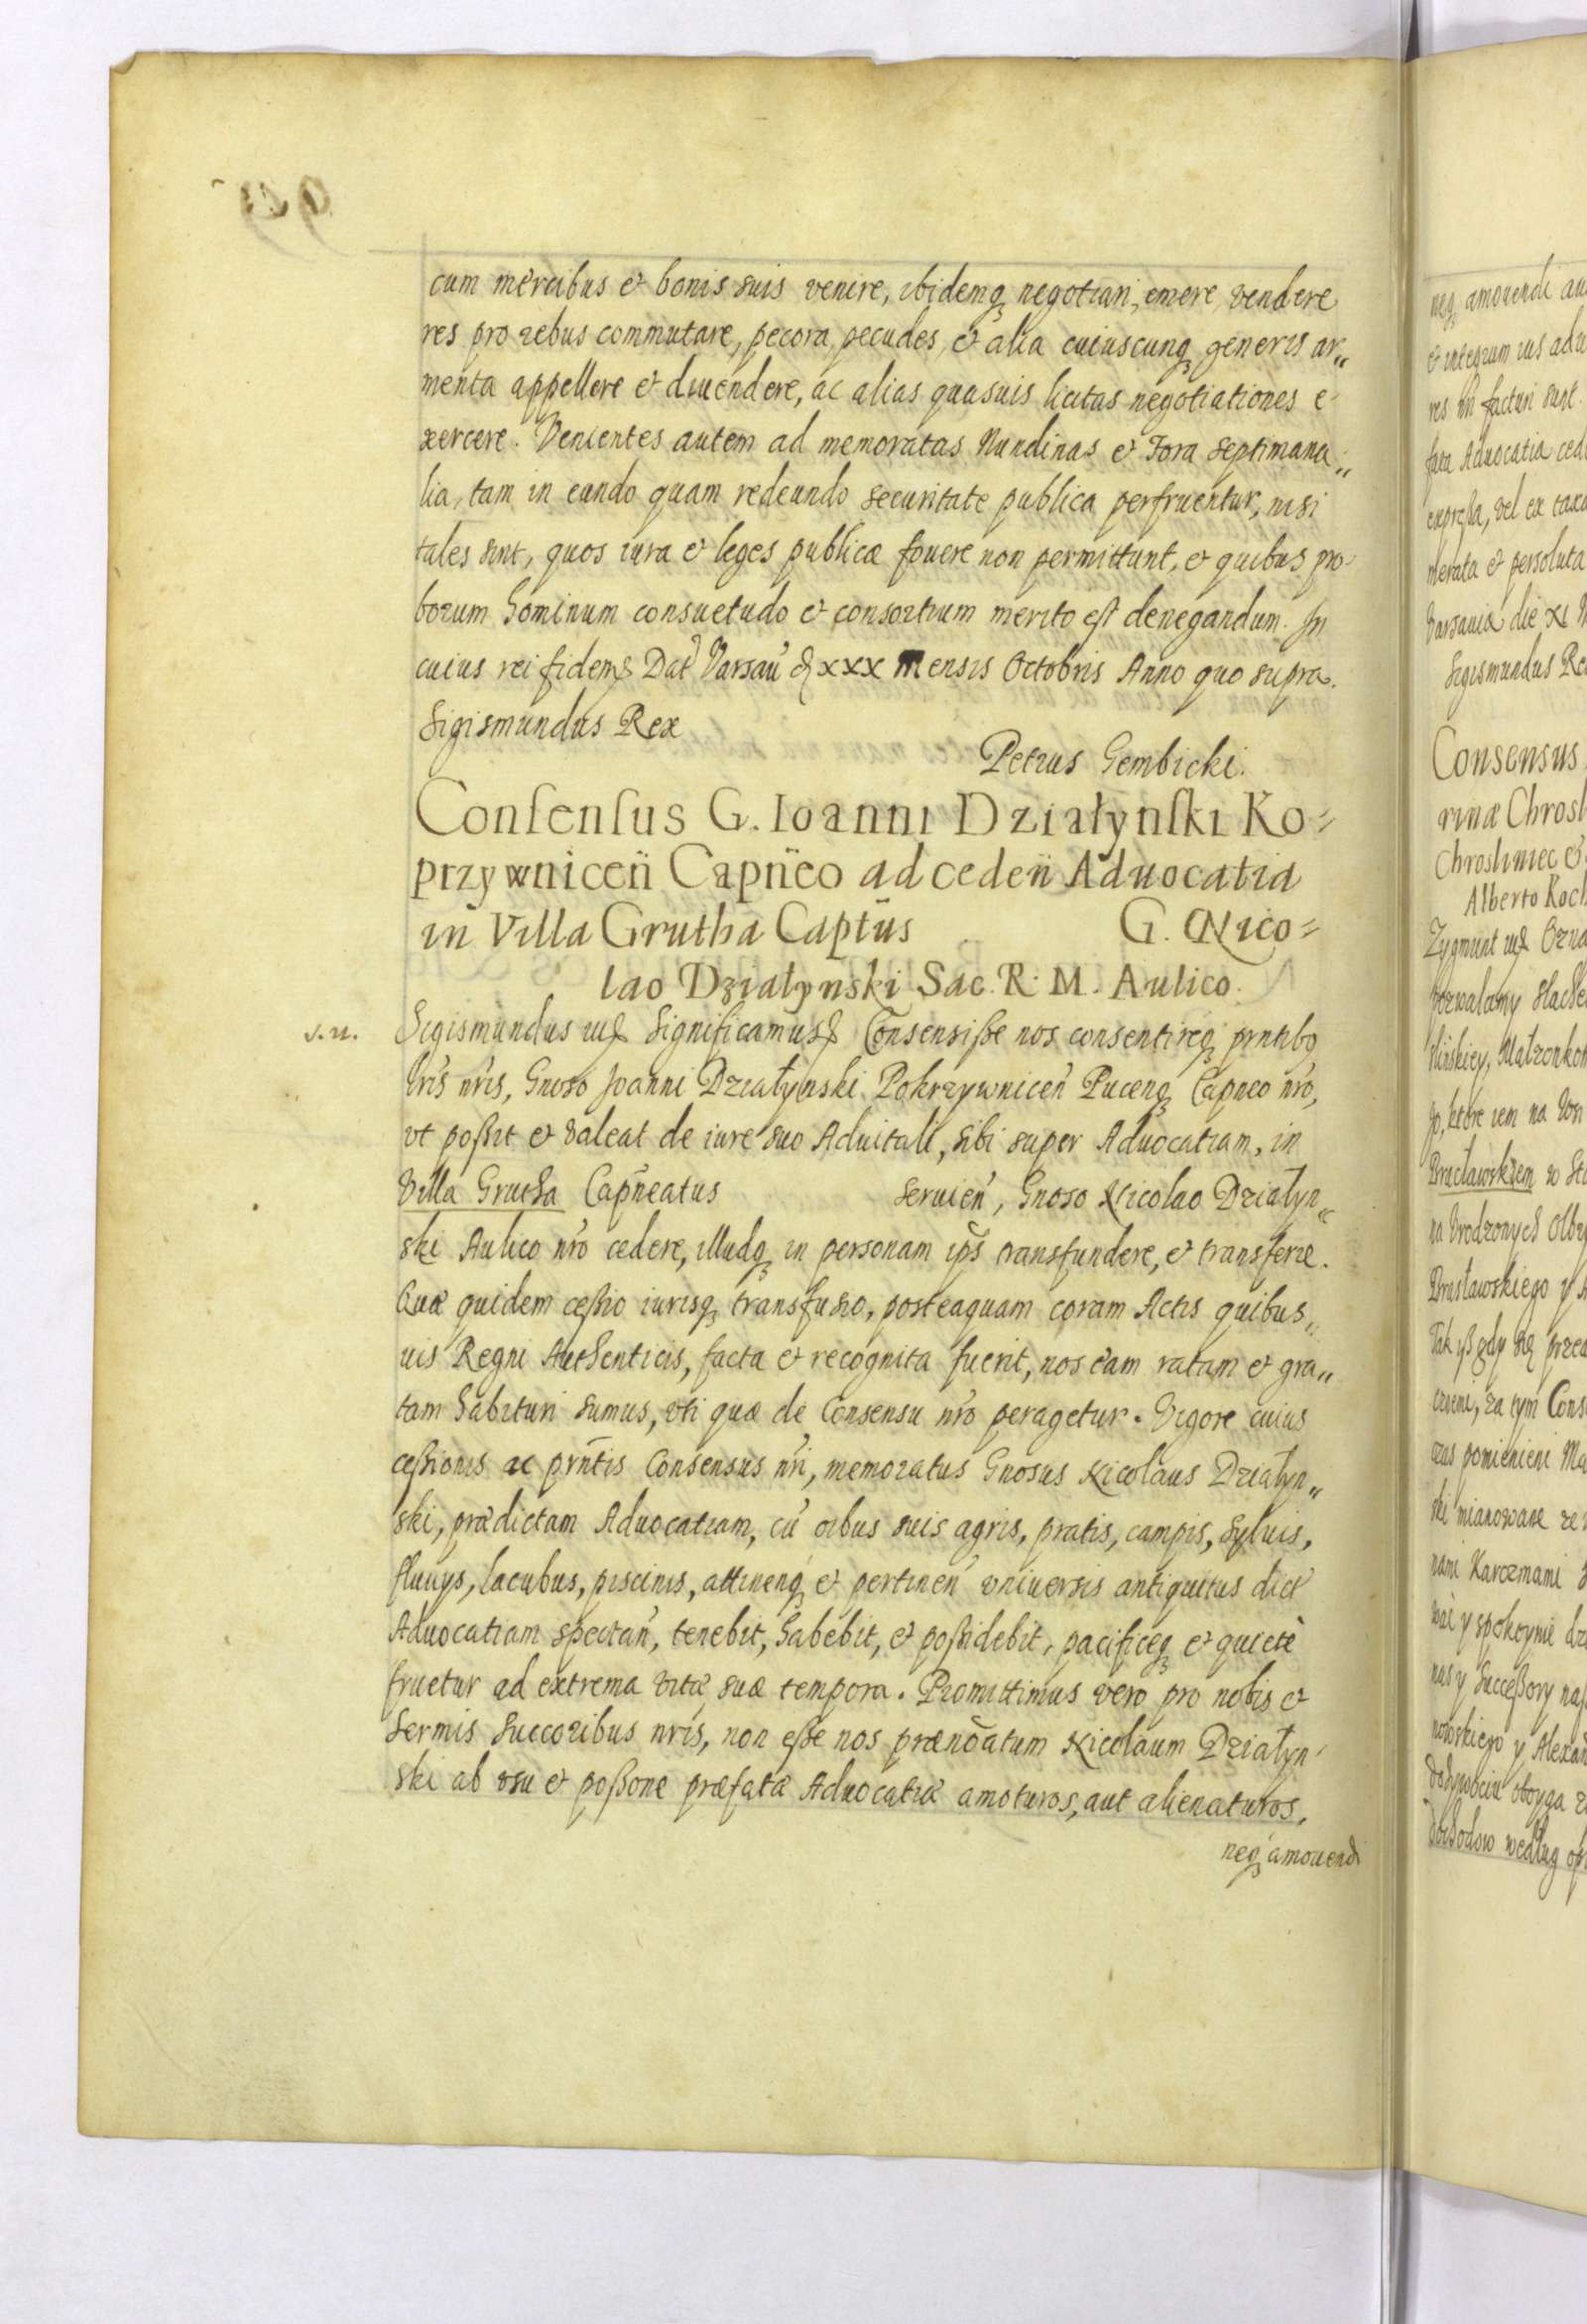 cum mercibus et bonis suis venire, ibidemq negotiari, emere, vendere
res pro rebus commutare, pecora, pecudes, et alia cuiuscunq generis ar„
menta appellere et diuendere, ac alias quasuis licitas negotiationes e-
xercere. Venientes autem ad memoratas Nundinas et Fora septimana„
lia, tam in eundo quam redeundo securitate publica perfruentur, nisi
tales sint, quos iura et leges publicæ fouere non permittunt, et quibus pro-
borum hominum consuetudo et consortium merito est denegandum. In
cuius rei fidem & Dat Varsau d xxx mensis Octobris Anno quo supra.
Sigismundus Rex
Petrus Gembicki.
Consensus G. Ioanni Działynski Ko=
przywniceñ Capñeo ad cedeñ Aduocatia
in Villa Grutha Captūs G. Nico=
lao Działynski Sac. R. M. Aulico.
s.n. Sigismundus etc Significamus etc Consensisse nos consentireq pntibq
lris nris, Gnoso Joanni Działynski Pokrzywniceñ Puceñq Capneo nro,
vt possit et valeat de iure suo Aduitali, sibi super Aduocatiam, in
Villa Grutha Capneatus seruieñ, Gnoso Nicolao Działyn„
ski Aulico nro cedere, illudq in personam ips transfundere, et transferre.
Quæ quidem cessio iurisq transfusio, posteaquam coram Actis quibus„
uis Regni Authenticis, facta et recognita fuerit, nos eam ratam et gra„
tam habituri sumus, vti quæ de Consensu nro peragetur. Vigore cuius
cessionis ac prntis Consensus nri, memoratus Gnosus Nicolaus Działyn„
ski, prædictam Aduocatiam, cu oibus suis agris, pratis, campis, syluis,
fluuys, lacubus, piscinis, attineñq et pertineñ vniuersis antiquitus dict
Aduocatiam spectañ, tenebit, habebit, et possidebit, pacificeq et quietè
fruetur ad extrema vitæ suæ tempora. Promittimus vero pro nobis et
Sermis Succoribus nris, non esse nos prænoatum Nicolaum Działyn-
ski ab vsu et possone præfatæ Aduocatiæ amoturos, aut alienaturos,
neq amouendi
neq amouendi
& integrum ius
res nri facturi sunt.
fata Aduocatia
expressa, vel ex
merata et persoluta
Varsauiæ die XI
Sigismundus
Consensus
rinæ
Alberto
Zygmunt
pozwalamy
go, ktore iem na
na Vrodzonych
Tak yß gdy się
za tym
czas pomienieni
ski mianowane
nami Karczmami
y spokoynie
nas y Successory
y
oboyga
według